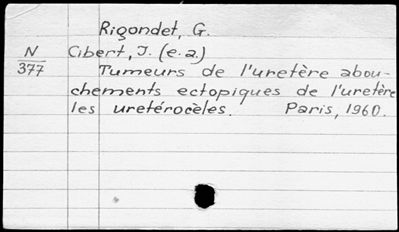 Rigondet, G.
N Cibert, J. (e.a.)
377 Tumeurs de l'uretère abou-
chements ectopiques de l'uretère
les uretérocèles. Paris, 1960.